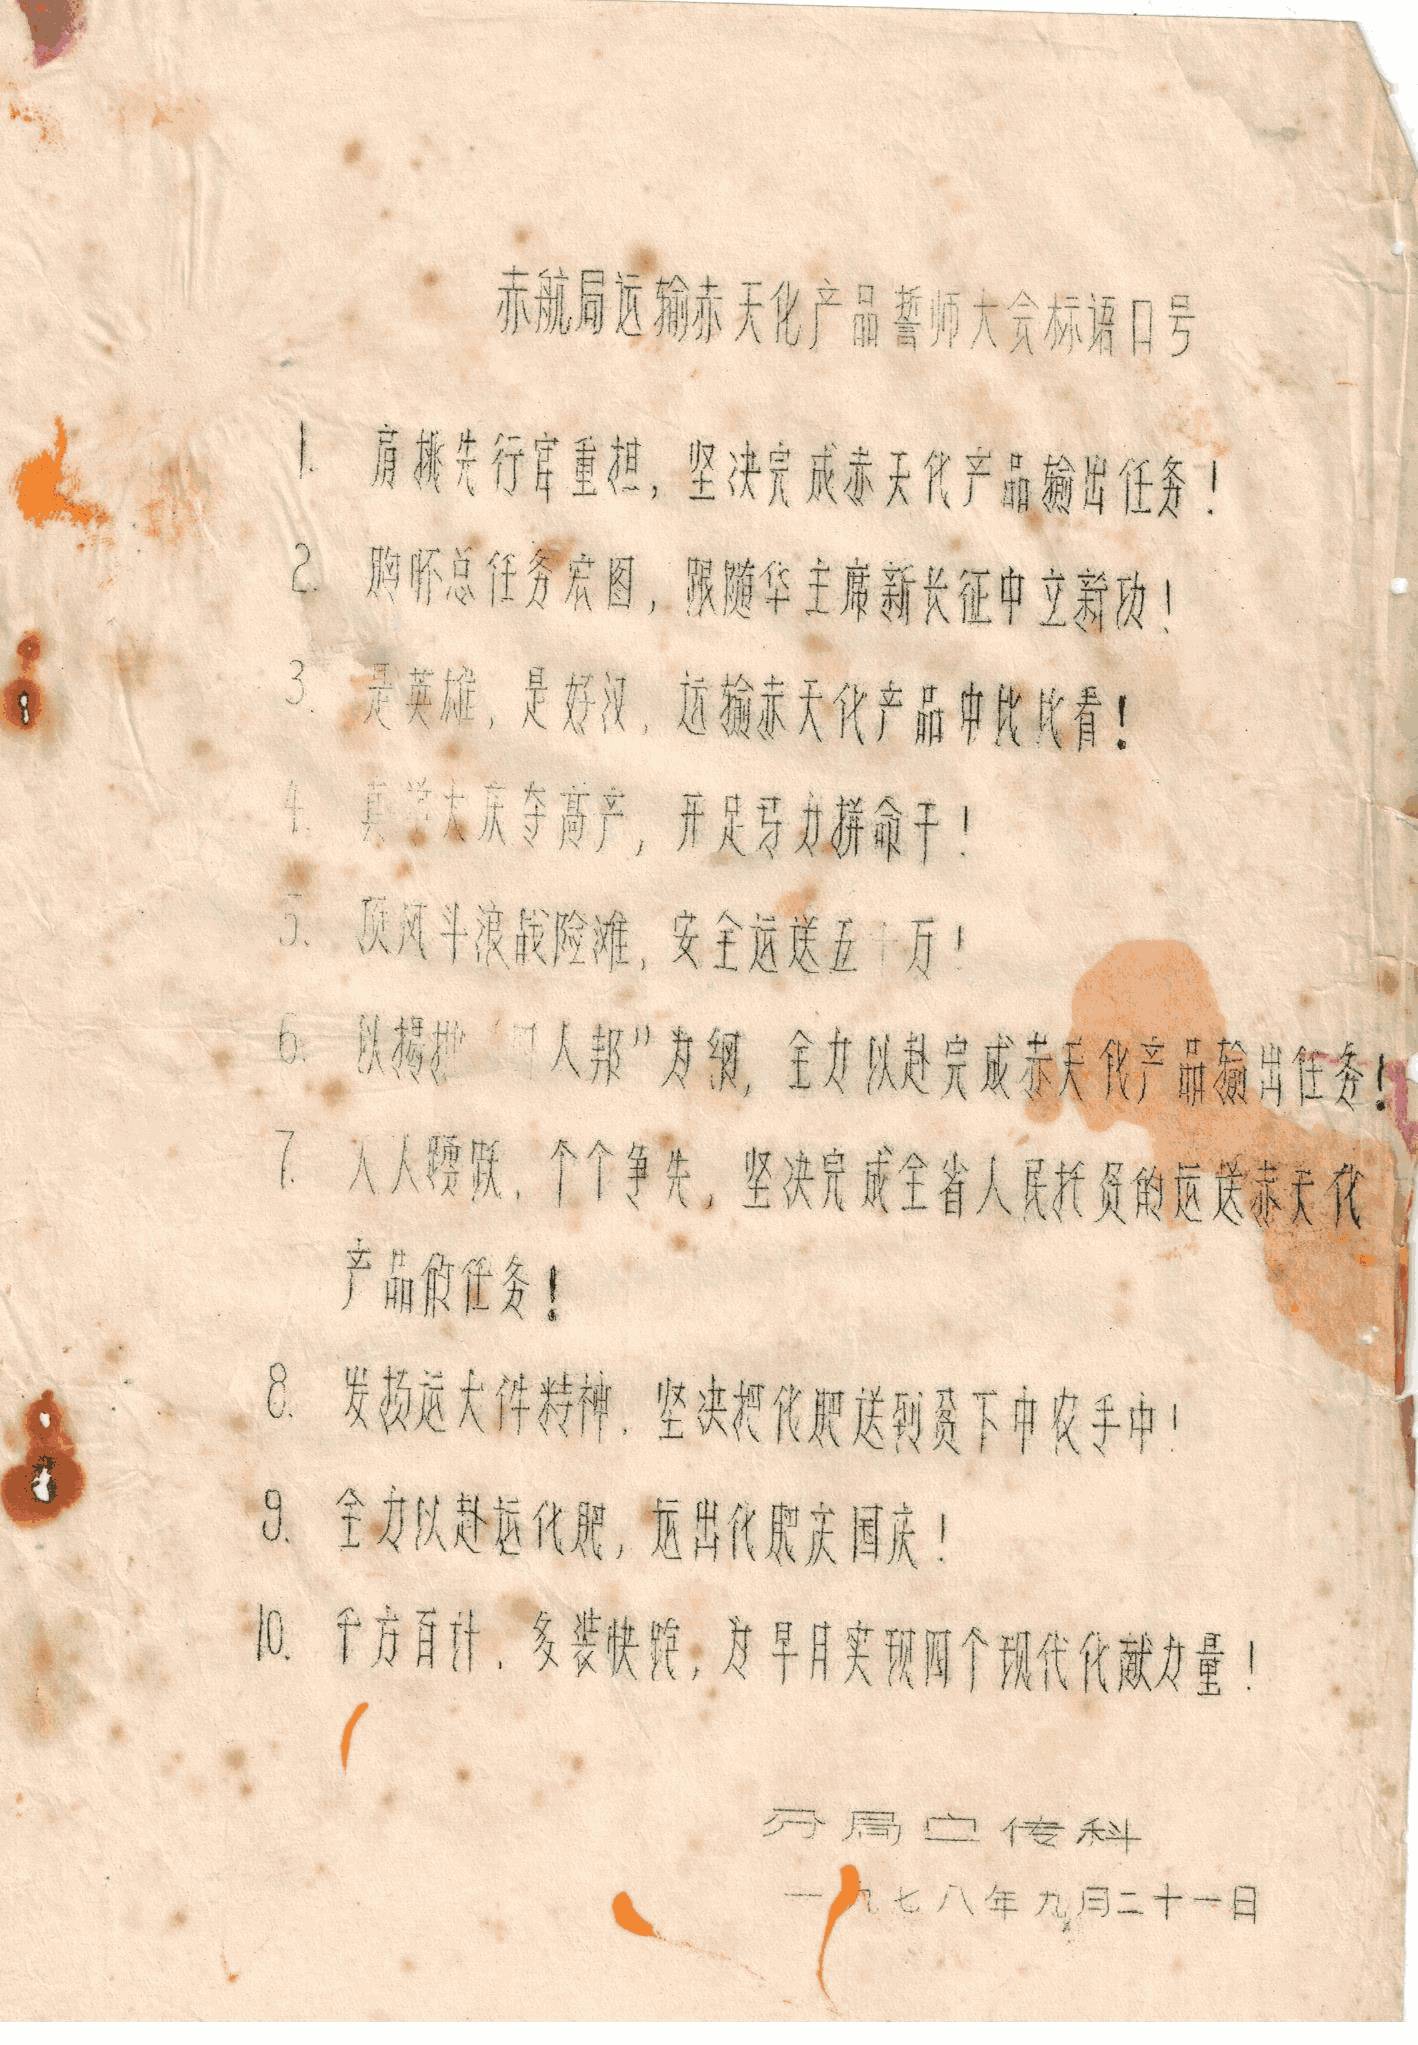 赤航局运输赤天化产品誓师大会标语口号
1. 肩挑先行官重担，坚决完成赤天化产品输出任务！
2. 胸怀总任务宏图，跟随华主席新长征中立新功！
3. 是英雄，是好汉，运输赤天化产品中比比看！
4. 真学大庆夺高产，开足马力拼命干！
5. 顶风斗浪战险滩，安全运送五十万！
6. 以揭批“四人邦”为纲，全力以赴完成赤天化产品输出任务！
7. 人人踴跃，个个争先，坚决完成全省人民托负的运送赤天化
产品的任务！
8. 发扬运大件精神，坚决把化肥送到贫下中农手中！
9. 全力以赴运化肥，运出化肥庆国庆！
10. 千方百计，多装快跑，为早日实现四个现代化献力量！
分局宣传科
一九七八年九月二十一日